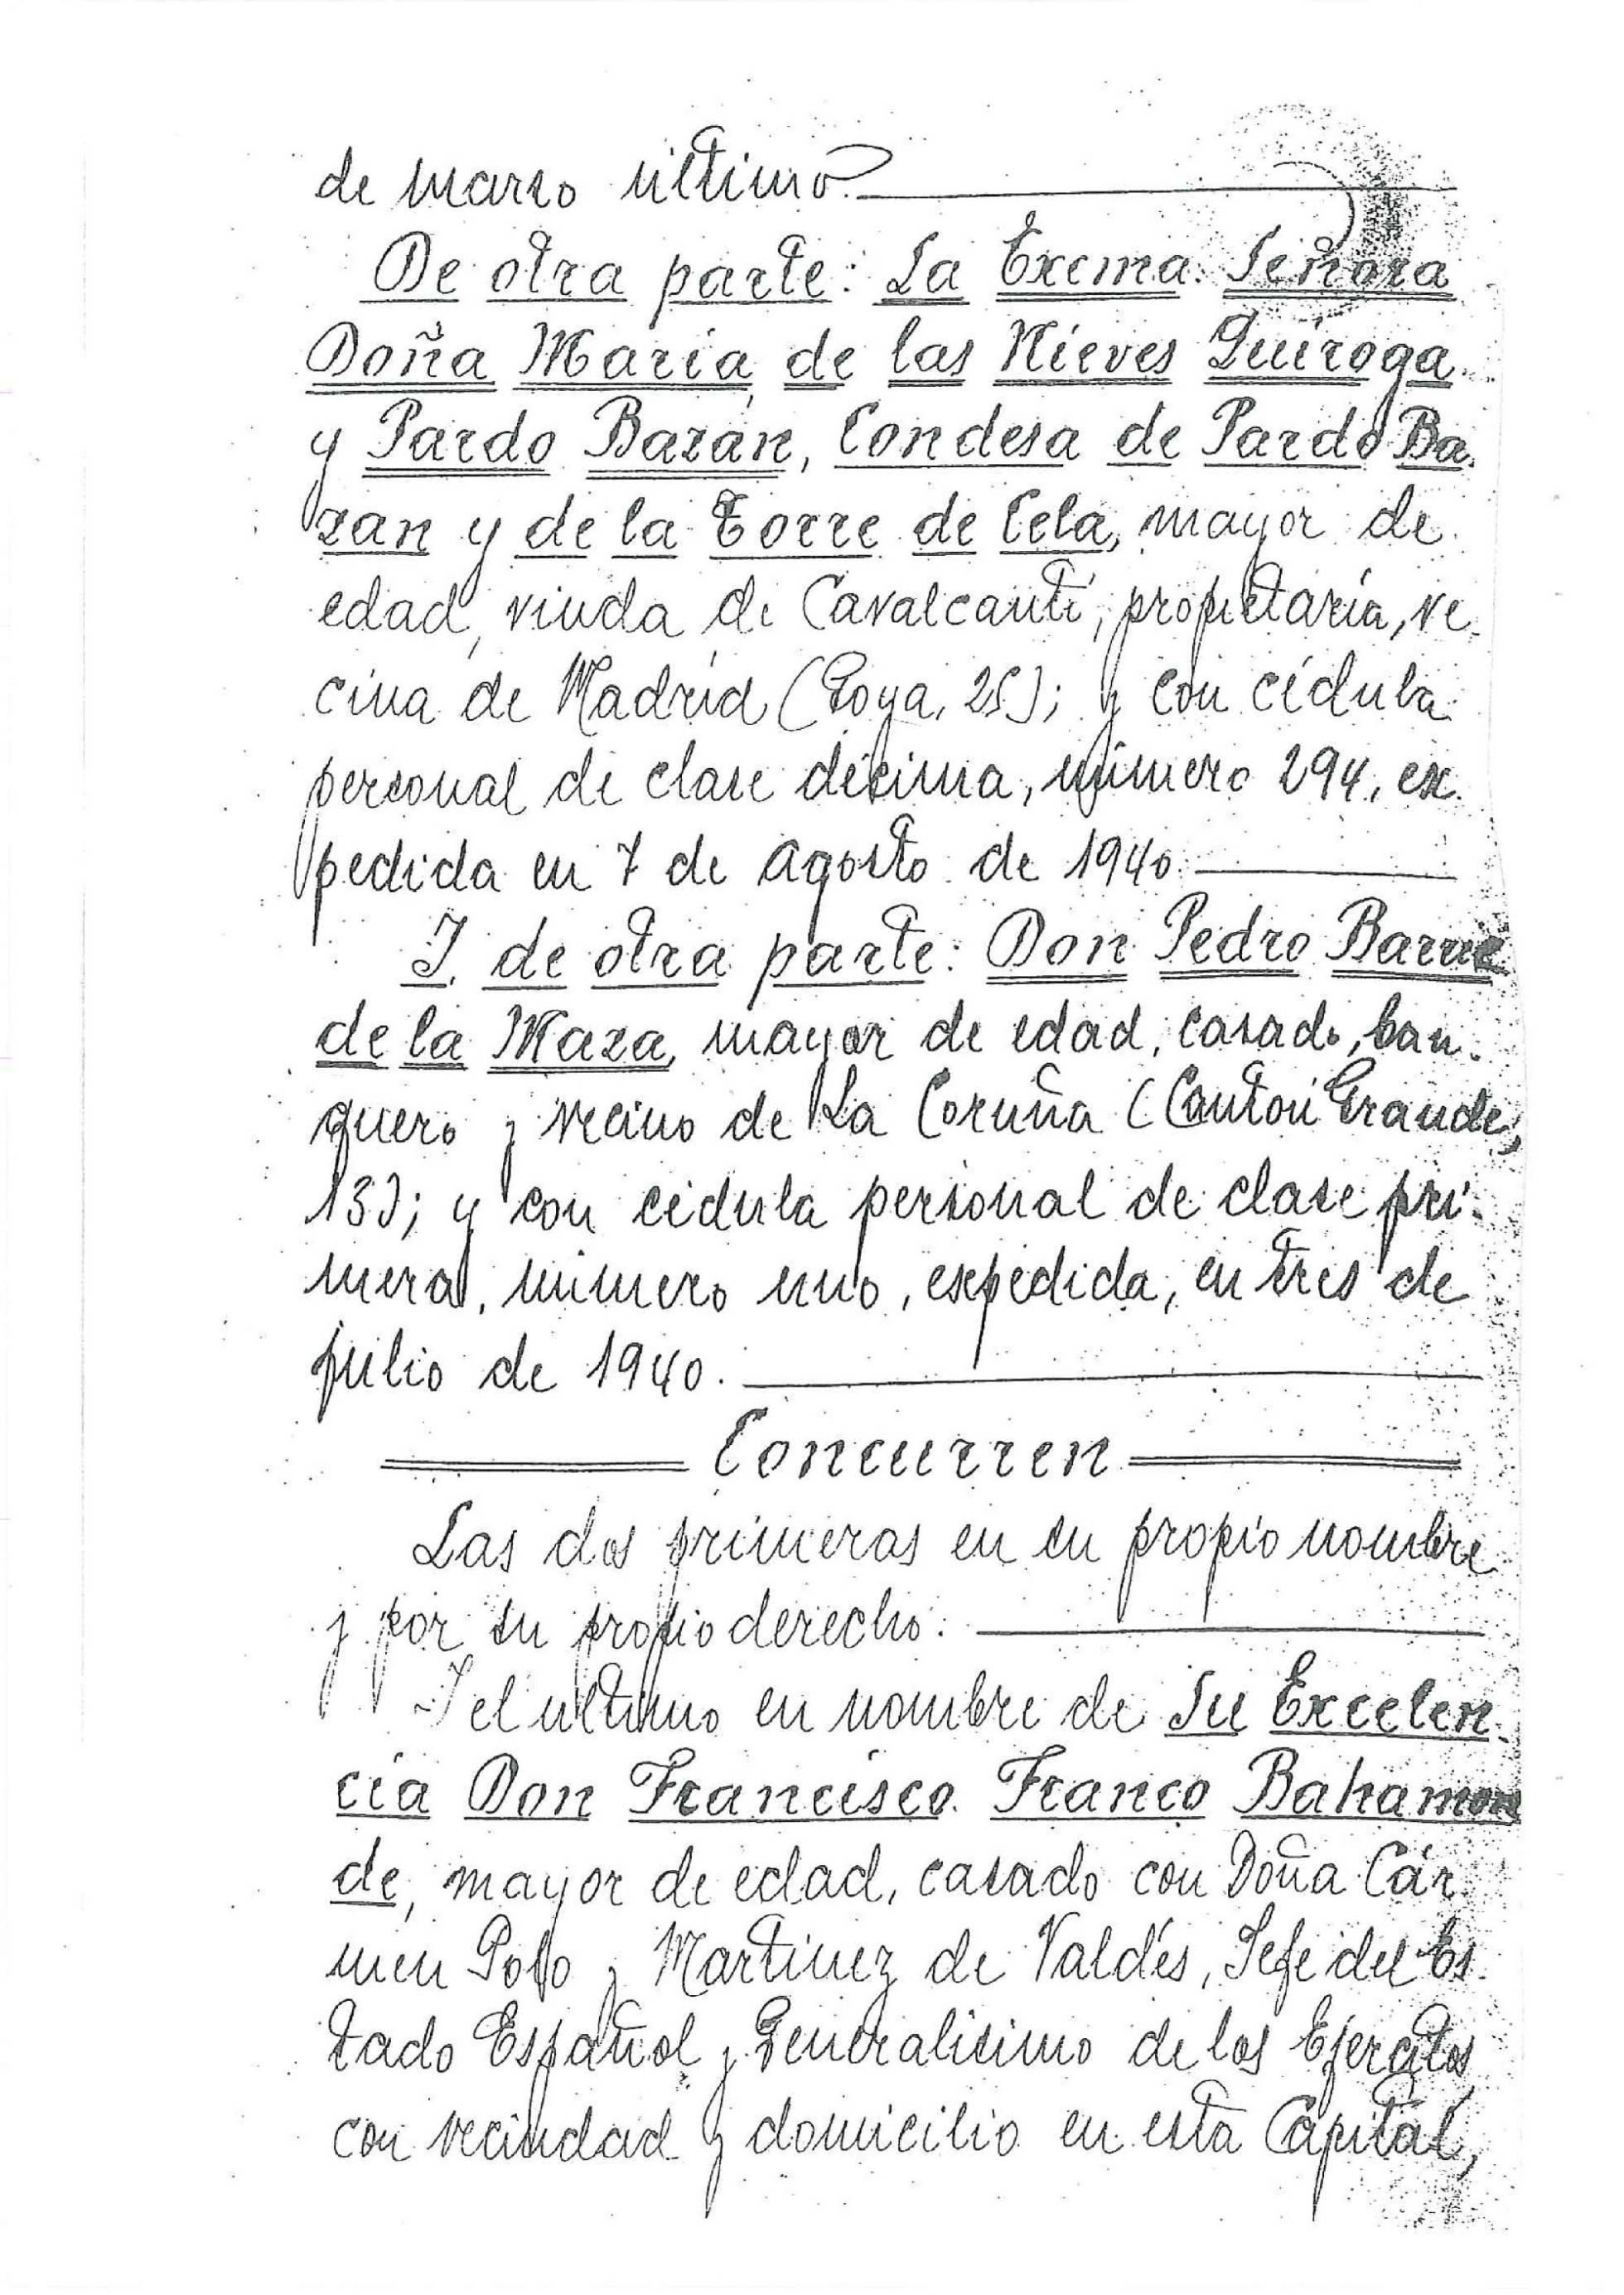 de marzo último.
De otra parte: La Excma. Señora
Doña María de las Nieves Quiroga
y Pardo Bazán, Condesa de Pardo Ba-
zan y de la Torre de Cela, mayor de
edad, viuda de Cavalcanti, propietaria, ve-
cina de Madrid (Goya, 25); y con cédula
personal de clase décima, número 294, ex-
pedida en 7 de agosto de 1940.
Y, de otra parte: Don Pedro Barrie
de la Maza, mayor de edad, casado, ban-
quero y vecino de La Coruña (Cantón Grande,
13); y con cédula personal de clase pri-
mera, número uno, expedida, en tres de
julio de 1940.
Concurren
Las dos primeras en su propio nombre
y por su propio derecho:
Y el último en nombre de Su Excelen-
cia Don Francisco Franco Bahamon
de, mayor de edad, casado con Doña Cár-
men Polo y Martinez de Valdés, Jefe del Es-
tado Español y Generalisimo de los Ejercitos
con vecindad y domicilio en esta Capital,